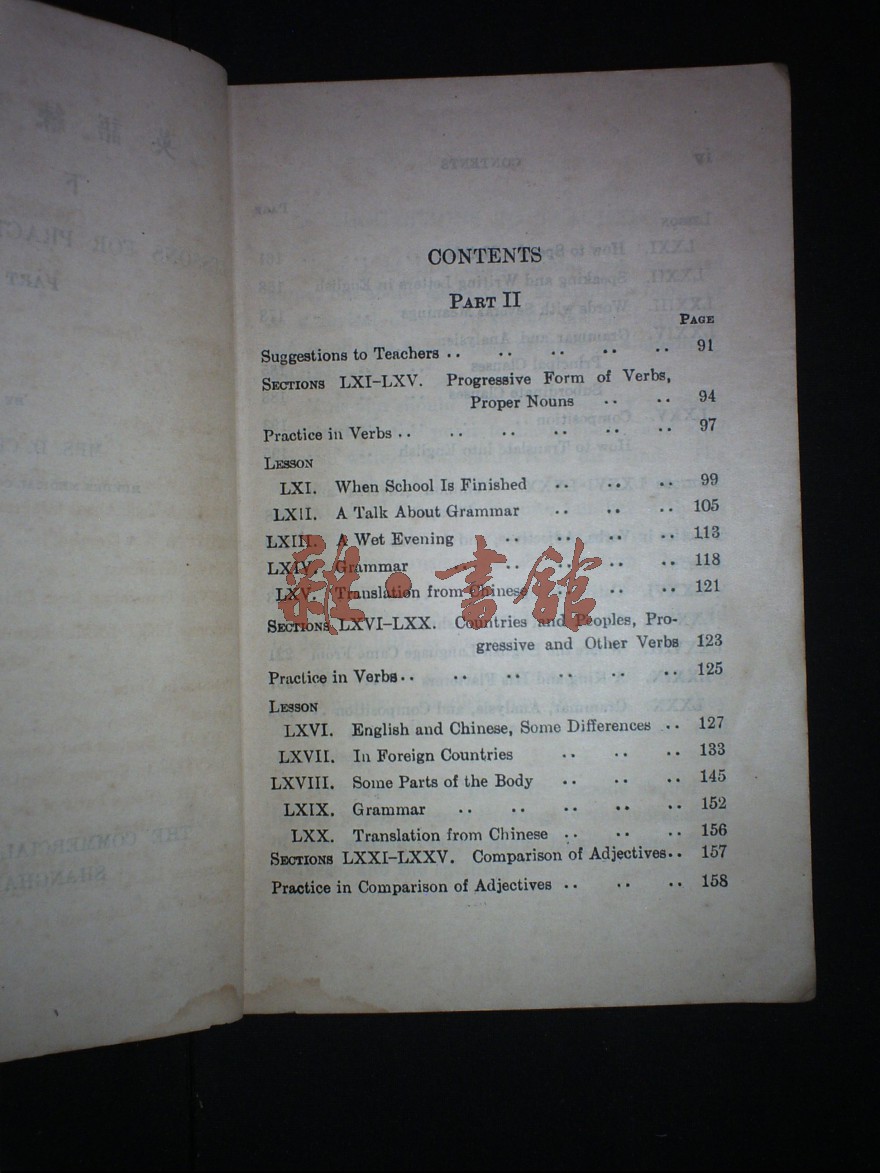 CONTENTS
PART II
PAGE
Suggestions to Teachers .. .. .. .. .. 91
SECTIONS LXI-LXV. Progressive Form of Verbs,
Proper Nouns .. .. 94
Practice in Verbs .. .. .. .. .. .. 97
LESSON
LXI. When School Is Finished .. .. .. 99
LXII. A Talk About Grammar .. .. .. 105
LXIII. A Wet Evening .. .. .. .. 113
LXIV. Grammar .. .. .. .. .. 118
LXV. Translation from Chinese .. .. .. 121
SECTIONS LXVI-LXX. Countries and Peoples, Pro-
gressive and Other Verbs 123
Practice in Verbs .. .. .. .. .. .. 125
LESSON
LXVI. English and Chinese, Some Differences .. 127
LXVII. In Foreign Countries .. .. .. 133
LXVIII. Some Parts of the Body .. .. .. 145
LXIX. Grammar .. .. .. .. .. 152
LXX. Translation from Chinese .. .. .. 156
SECTIONS LXXI-LXXV. Comparison of Adjectives .. 157
Practice in Comparison of Adjectives .. .. .. 158
雜·書館